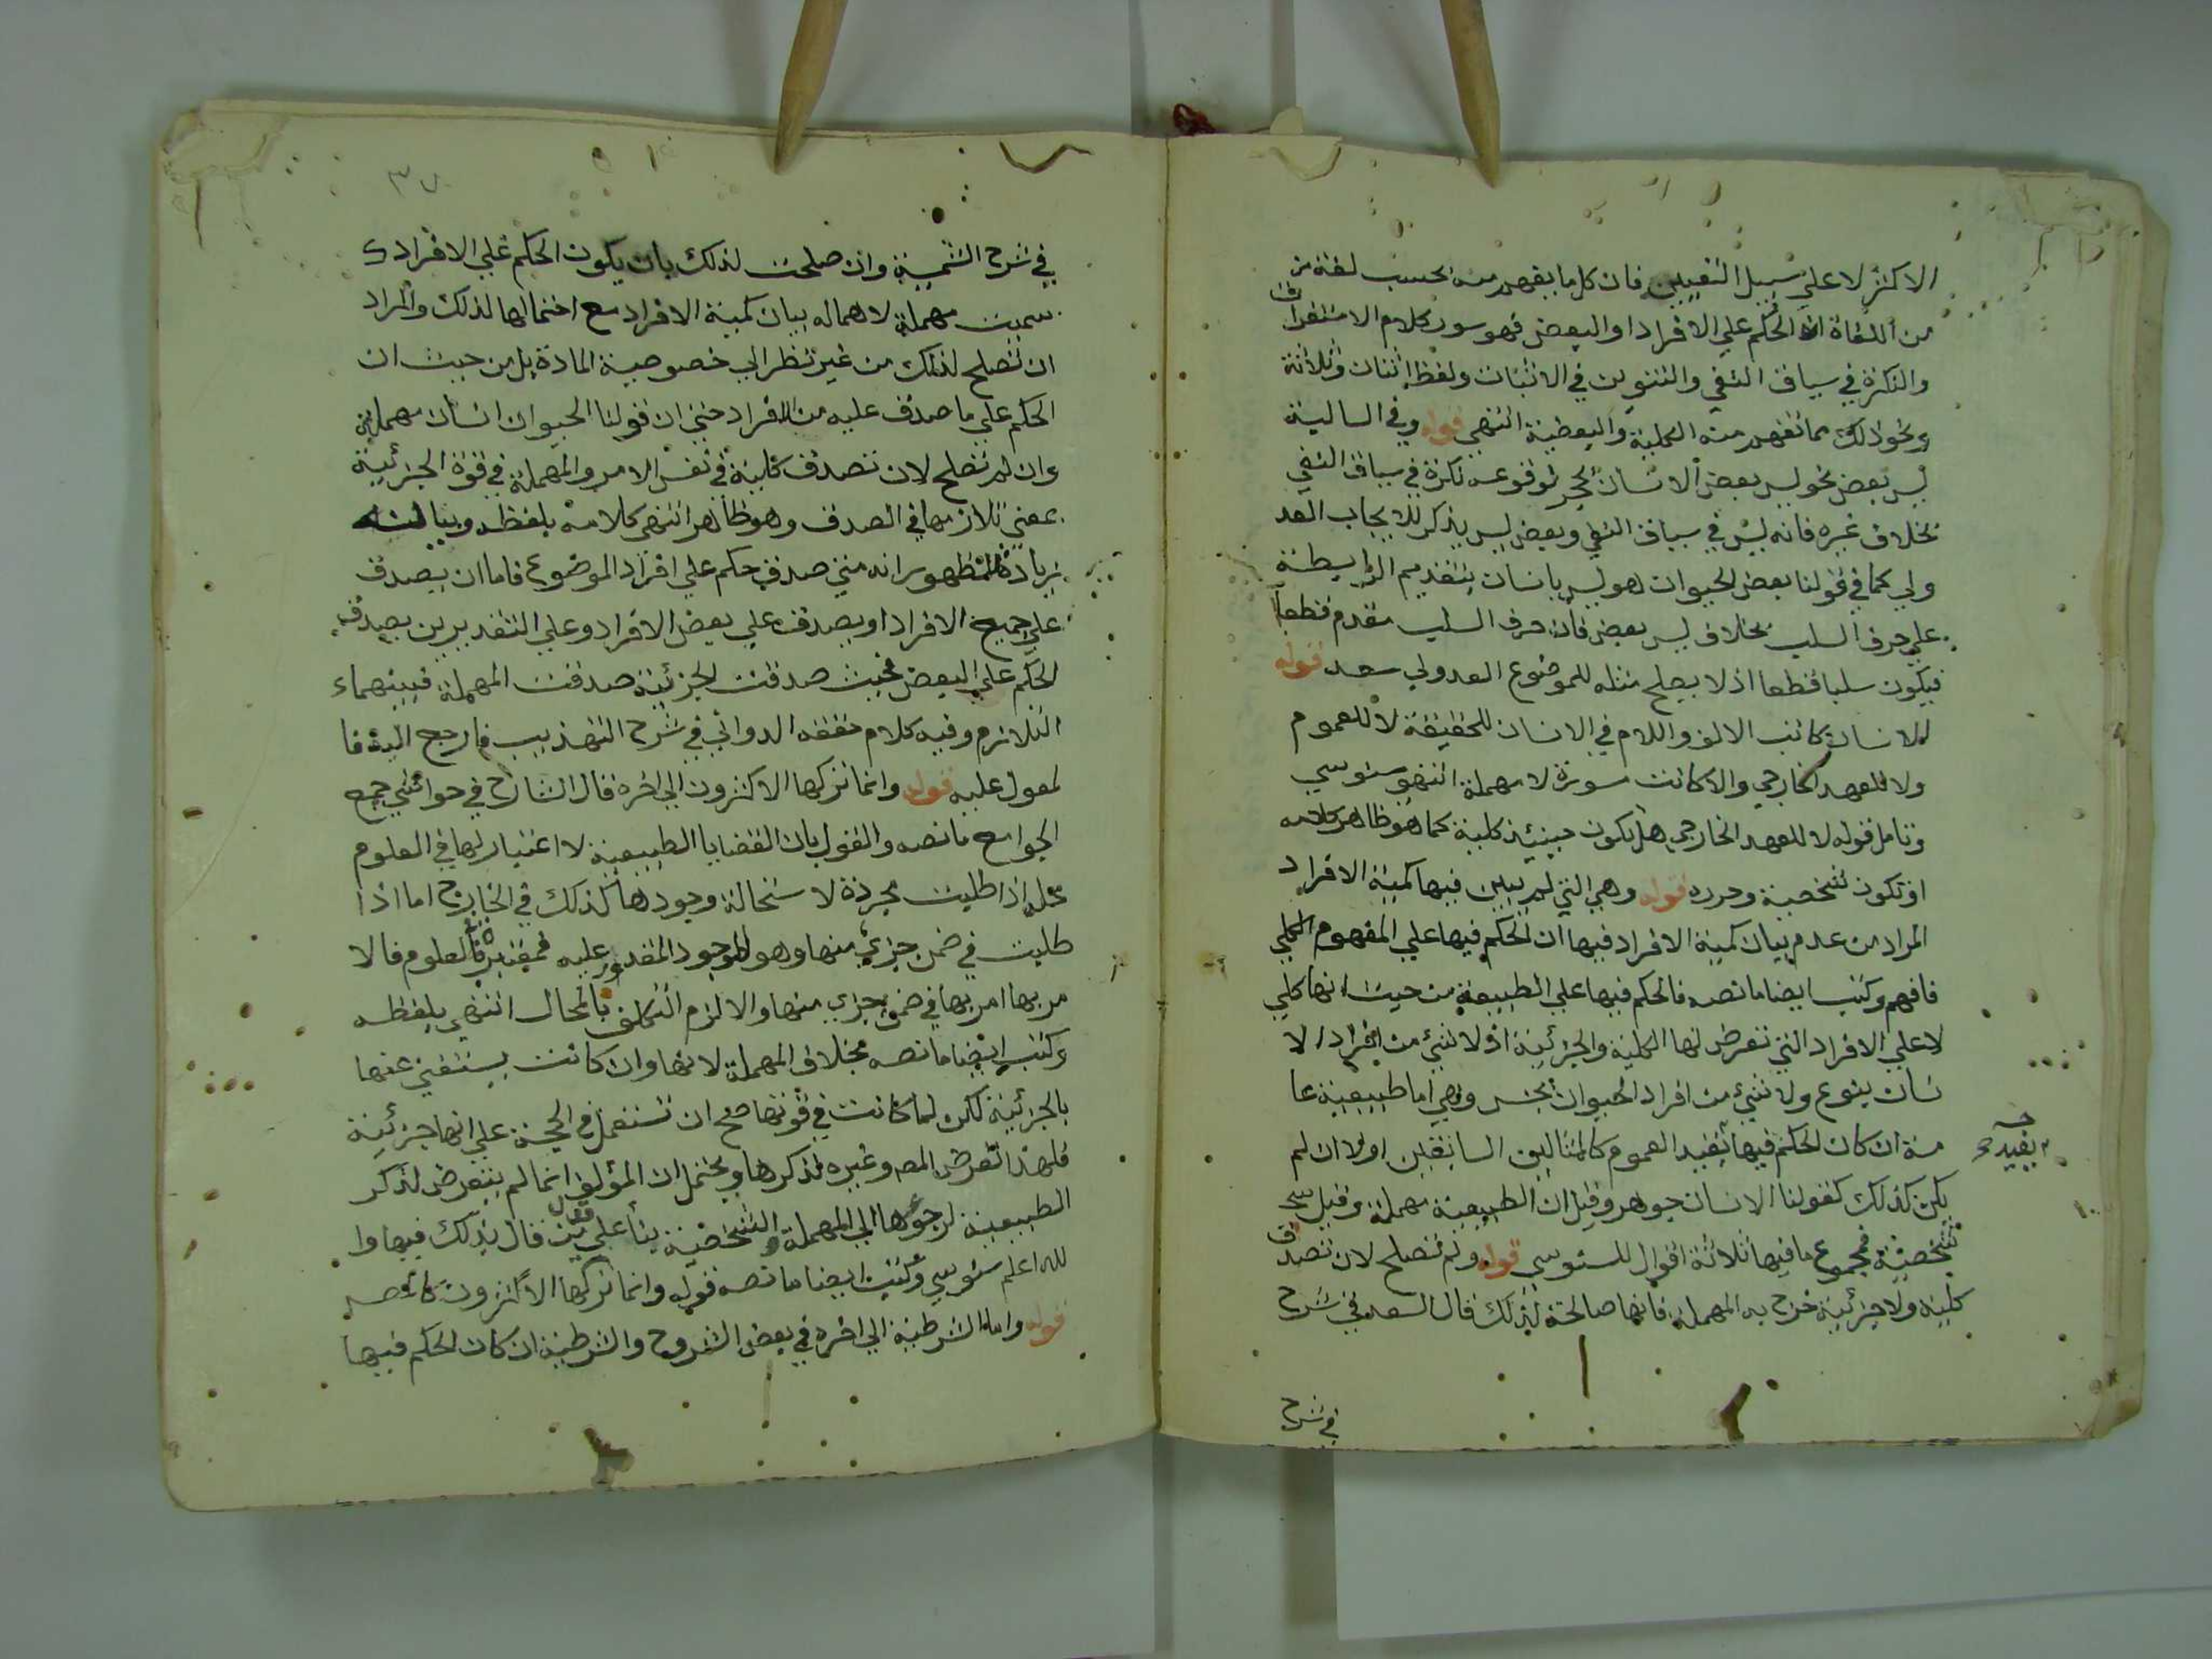 الاكثر لا علي سبيل التعيين فان كل ما يفهم منه بحسب لغة من
من اللغاة ان الحكم علي الافراد او البعض فهو سور كلام الاستغراق
والنكرة في سياق النفي والتنوين في الاثبات ولفظ اثنان وثلاثة
ونحو ذلك مما تفهم منه الكلية والبعضية انتهي قوله وفي السالبة
ليس بعض نحو ليس بعض الانسان بحجر لوقوعه نكرة في سياق النفي
بخلاف غيره فانه ليس في سياق النفي وبعض ليس يذكر للايجاب العد
ولي كما في قولنا بعض الحيوان هو ليس بانسان بتقديم الرابطة
علي حرف السلب بخلاف ليس بعض فان حرف السلب مقدم قطعا
فيكون سلبا قطعا اذ لا يصلح مثله للموضوع العدولي سعد قوله
الانسان كاتب الالف واللام في الانسان للحقيقة لا للعموم
ولا للعهد الخارجي والا كانت مسورة لا مهملة انتهي سنوسي
وتامل قوله لا للعهد الخارجي هل يكون حينئذ كلية كما هو ظاهر كلامه
او تكون شخصية وحرره قوله وهي التي لم يبين فيها كمية الافراد
المراد من عدم بيان كمية الافراد فيها ان الحكم فيها علي المفهوم الكلي
فافهم وكتب ايضا ما نصه فالحكم فيها علي الطبيعة من حيث انها كلي
لا علي الافراد التي تعرض لها الكلية والجزئية اذ لا شئ من افراد الا
نسان بنوع ولا شئ من افراد الحيوان بجنس وهي اما طبيعية عا
مة ان كان الحكم فيها بقيد العموم كالمثالين السابقين او لا ان لم
بقيد
يكن كذلك كقولنا الانسان جوهر وقيل ان الطبيعية مهملة وقيل
شخصية فمجموع ما فيها ثلاثة اقوال للسنوسي قوله ولم تصلح لان تصدق
كلية ولا جزئية خرج به المهملة فانها صالحة لذلك قال السعد في شرح
في شرح
٣٧
في شرح الشمسية وان صلحت لذلك بان يكون الحكم علي الافراد
سميت مهملة لاهماله بيان كمية الافراد مع احتمالها لذلك والمراد
ان تصلح لذلك من غير نظر الي خصوصية المادة بل من حيث ان
الحكم علي ما صدق عليه من الافراد حتي ان قولنا الحيوان انسان مهملة
وان لم تصلح لان تصدق كلية في نفس الامر والمهملة في قوة الجزئية
بمعني تلازمها في الصدق وهو ظاهر انتهي كلامه بلفظه وبيانه
بزيادة الظهور انه متي صدق حكم علي افراد الموضوع فاما ان يصدق
علي جميع الافراد او يصدق علي بعض الافراد وعلي التقديرين يصدق
الحكم علي البعض فحيث صدقت الجزئية صدقت المهملة فبينهما
التلازم وفيه كلام حققه الدواني في شرح التهذيب فارجع اليه فا
لمعول عليه قوله وانما تركها الاكثرون الي اخره قال الشارح في حواشي جمع
الجوامع ما نصه والقول بان القضايا الطبيعية لا اعتبار لها في العلوم
محله اذا طلبت مجردة لاستحالة وجودها كذلك في الخارج اما اذا
طلبت في ضمن جزئي منها وهو الموجود المقدور عليه فمعتبرة في العلوم فالا
مر بها امر بها في ضمن جزئي منها والا لزم التكلف بالمحال انتهي بلفظه
وكتب ايضا ما نصه بخلاف المهملة لانها وان كانت يستغني عنها
بالجزئية لكن لما كانت في قوتها صح ان تستعمل في الحجة علي انها جزئية
فلهذا تعرض المص وغيره لذكرها ويحتمل ان المؤلف انما لم يتعرض لذكر
الطبيعية لرجوعها الي المهملة والشخصية بناء علي قول من قال بذلك فيها وا
لله اعلم سنوسي وكتب ايضا ما نصه قوله وانما تركها الاكثرون
قوله واما الشرطية الي اخره في بعض الشروح والشرطية ان كان الحكم فيها